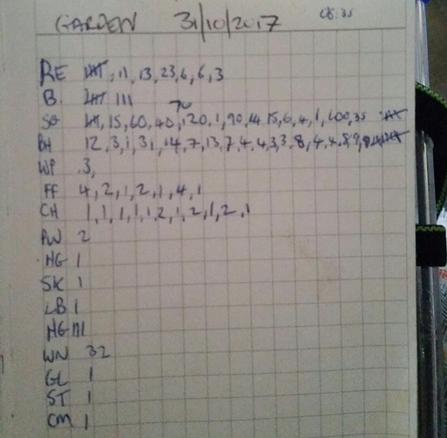 GARDEN 31/10/2017 08:35
RE 𝍸, 11, 13, 23, 6, 6, 3
B. 𝍸 III
SG 𝍸, 15, 60, 40, 70, 120, 1, 90, 14, 15, 6, 4, 1, 600, 35
BH 12, 3, 1, 31, 14, 7, 13, 7, 4, 4, 3, 3, 8, 4, 4, 8, 9,
WP 3,
FF 4, 2, 1, 2, 1, 4, 1
CH 1, 1, 1, 1, 1, 2, 1, 2, 1, 2, 1
PW 2
HG 1
SK 1
LB 1
HGM 1
WN 32
GL 1
ST 1
CM 1